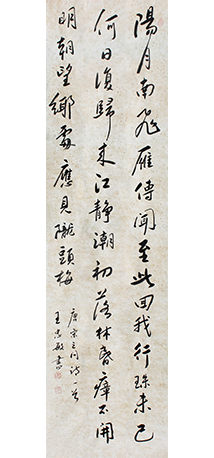 陽月南飛雁傳聞至此回我行殊未已
何日復歸來江靜潮初落林昏瘴不開
明朝望鄉處應見隴頭梅
唐宋之問詩一首
王忠敏書